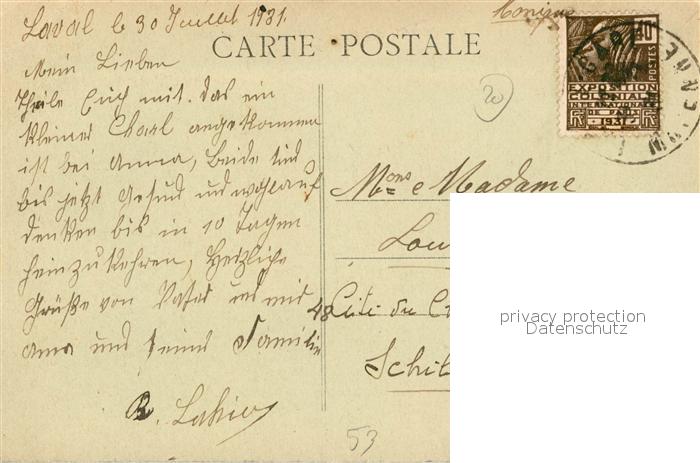 Laval le 30 Juillet 1931.
CARTE POSTALE
Mein Lieben
Theile Euch mit. das ein
kleiner Charl angekommen
ist bei Anna, beide sind
bis jetzt Gesund und wohlauf
denken bis in 10 Tagen
heim zu kehren, Herzliche
Grüße von Vater und mir
Anna und seine Familie
20
40c
POSTES
EXPOSITION
COLONIALE
INTERNATIONALE
1931
Mons e Madame
48 Cité du
Schil
53
privacy protection
Datenschutz